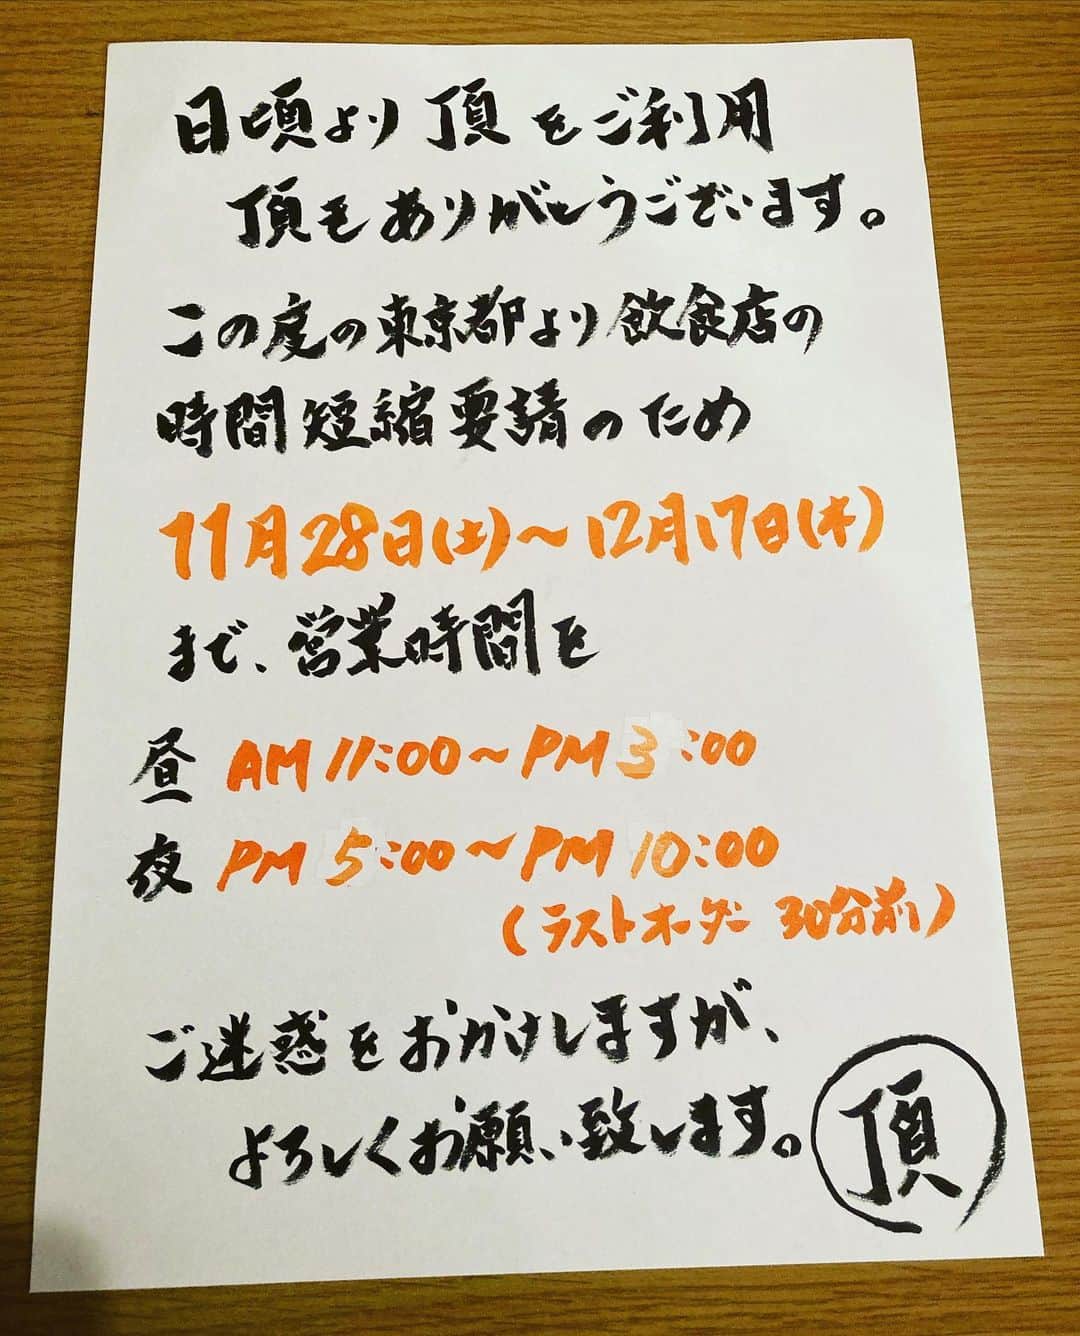 日頃より頂をご利用
頂きありがとうございます。
この度の東京都より飲食店の
時間短縮要請のため
11月28日(土)～12月17日(木)
まで、営業時間を
昼 AM 11:00～PM 3:00
夜 PM 5:00～PM 10:00
(ラストオーダー 30分前)
ご迷惑をおかけしますが、
よろしくお願い致します。
頂